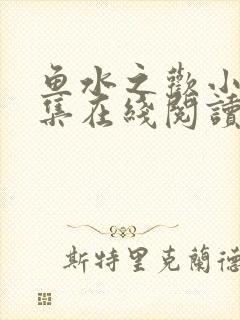 鱼水之歡小
集在綫閱讀
斯特里克蘭德